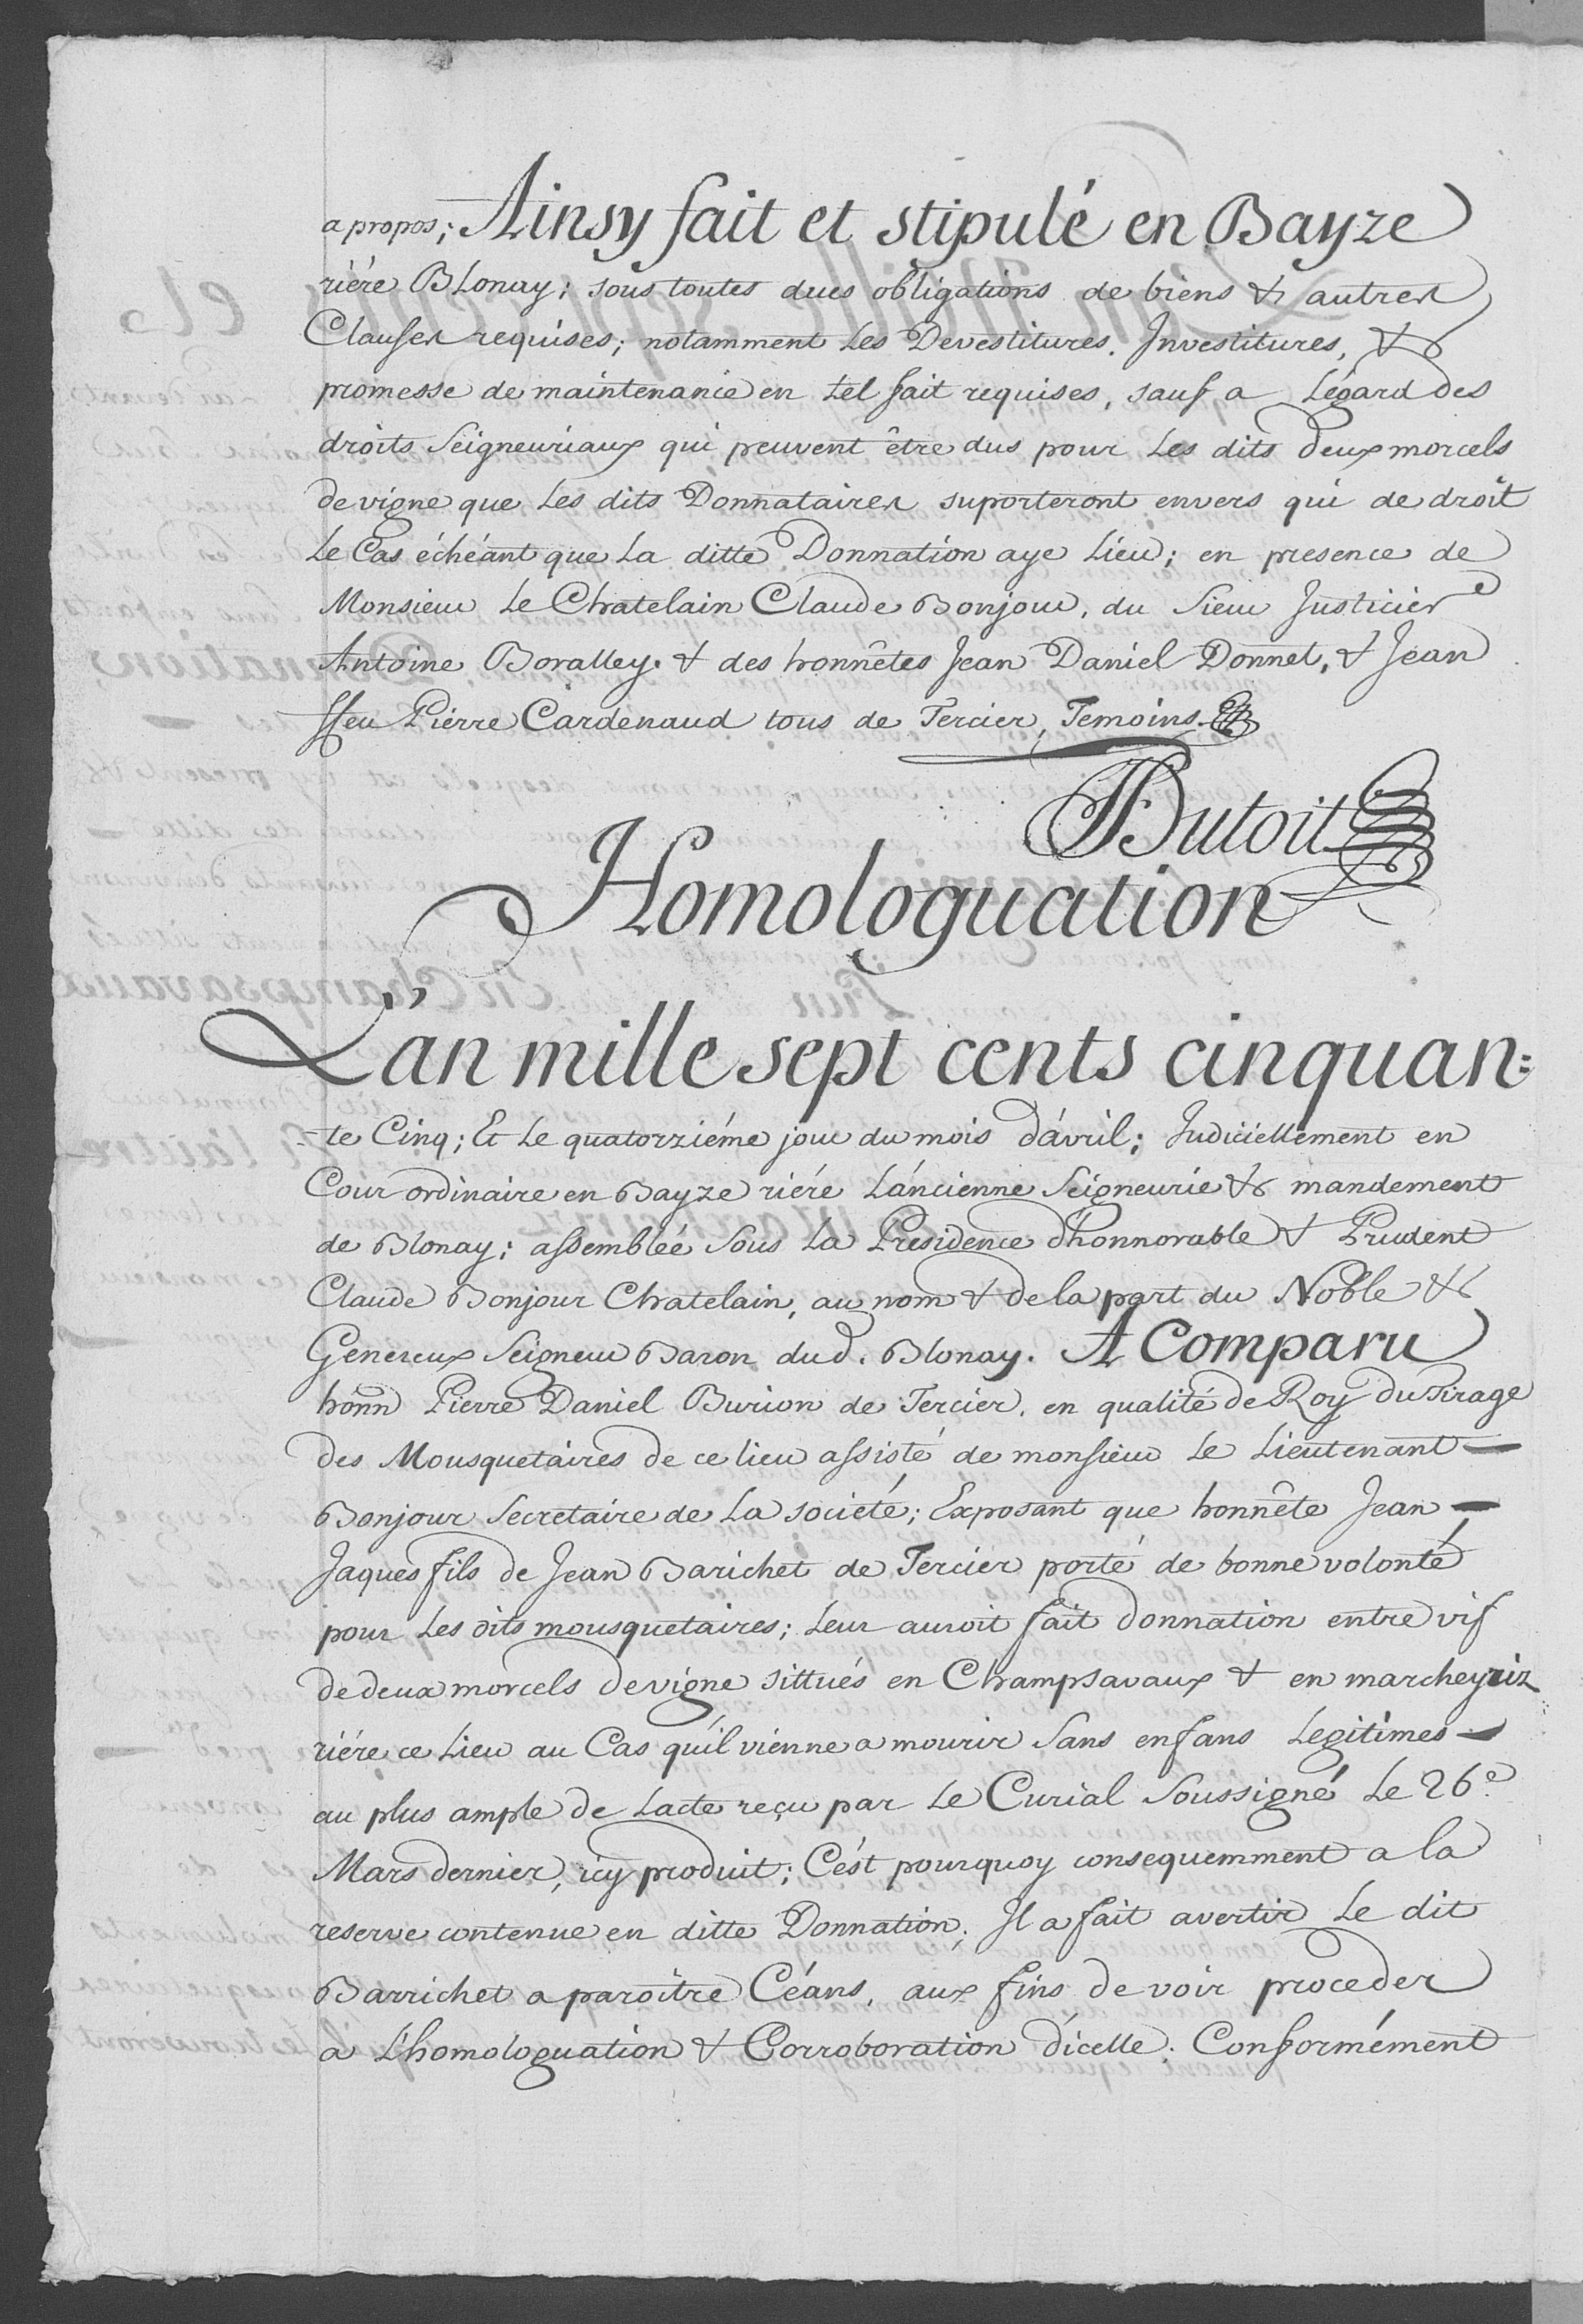 a propos; Ainsy fait et stipulé en Bayze
riére Blonay; sous toutes dues obligations de biens & autres
Clauses requises; notamment Les Devestitures, Investitures, &
promesse de maintenance en tel fait requises, sauf a Légard des
droits Seigneuriaux qui peuvent être dus pour Les dits deux morcels
de vigne que Les dits Donnataires suporteront envers qui de droit
Le Cas échéant que La ditte Donnation aye Lieu; en presence de
Monsieur Le Chatelain Claude Bonjour, du Sieur Justicier
Antoine Boralley. & des honnêtes Jean Daniel Donnet, & Jean
ffeu Pierre Cardenaud tous de Tercier, Temoins.
Dutoit
Homologuation
L'an mille sept cents cinquan=
=te Cinq; Et Le quatorziéme jour du mois d'avril; Judiciellement en
Cour ordinaire en Bayze riére L'ancienne Seigneurie & mandement
de Blonay; assemblée sous La Presidence d'honnorable & Prudent
Claude Bonjour Chatelain, au nom & de la part du Noble &
Genereux Seigneur Baron dud. Blonay. A Comparu
honn Pierre Daniel Burion de Tercier, en qualité de Roy du Tirage
des Mousquetaires de ce lieu assisté de monsieur Le Lieutenant
Bonjour Secretaire de La societé; Exposant que honnête Jean
Jaques fils de Jean Barichet de Tercier porté de bonne volonté
pour Les dits mousquetaires; Leur auroit fait donnation entre vif
de deux morcels de vigne sittués en Champsavaux & en marcheyriz
riére ce Lieu au Cas qu'il vienne a mourir Sans enfans Legitimes
au plus ample de Lacte reçu par Le Curial Soussigné Le 26e.
Mars dernier, icy produit; C'est pourquoy consequemment a la
reserve contenue en ditte Donnation; Il a fait avertir Le dit
Barrichet a paroître Céans, aux fins de voir proceder
a L'homologuation & Corroboration d'icelle; Conformément